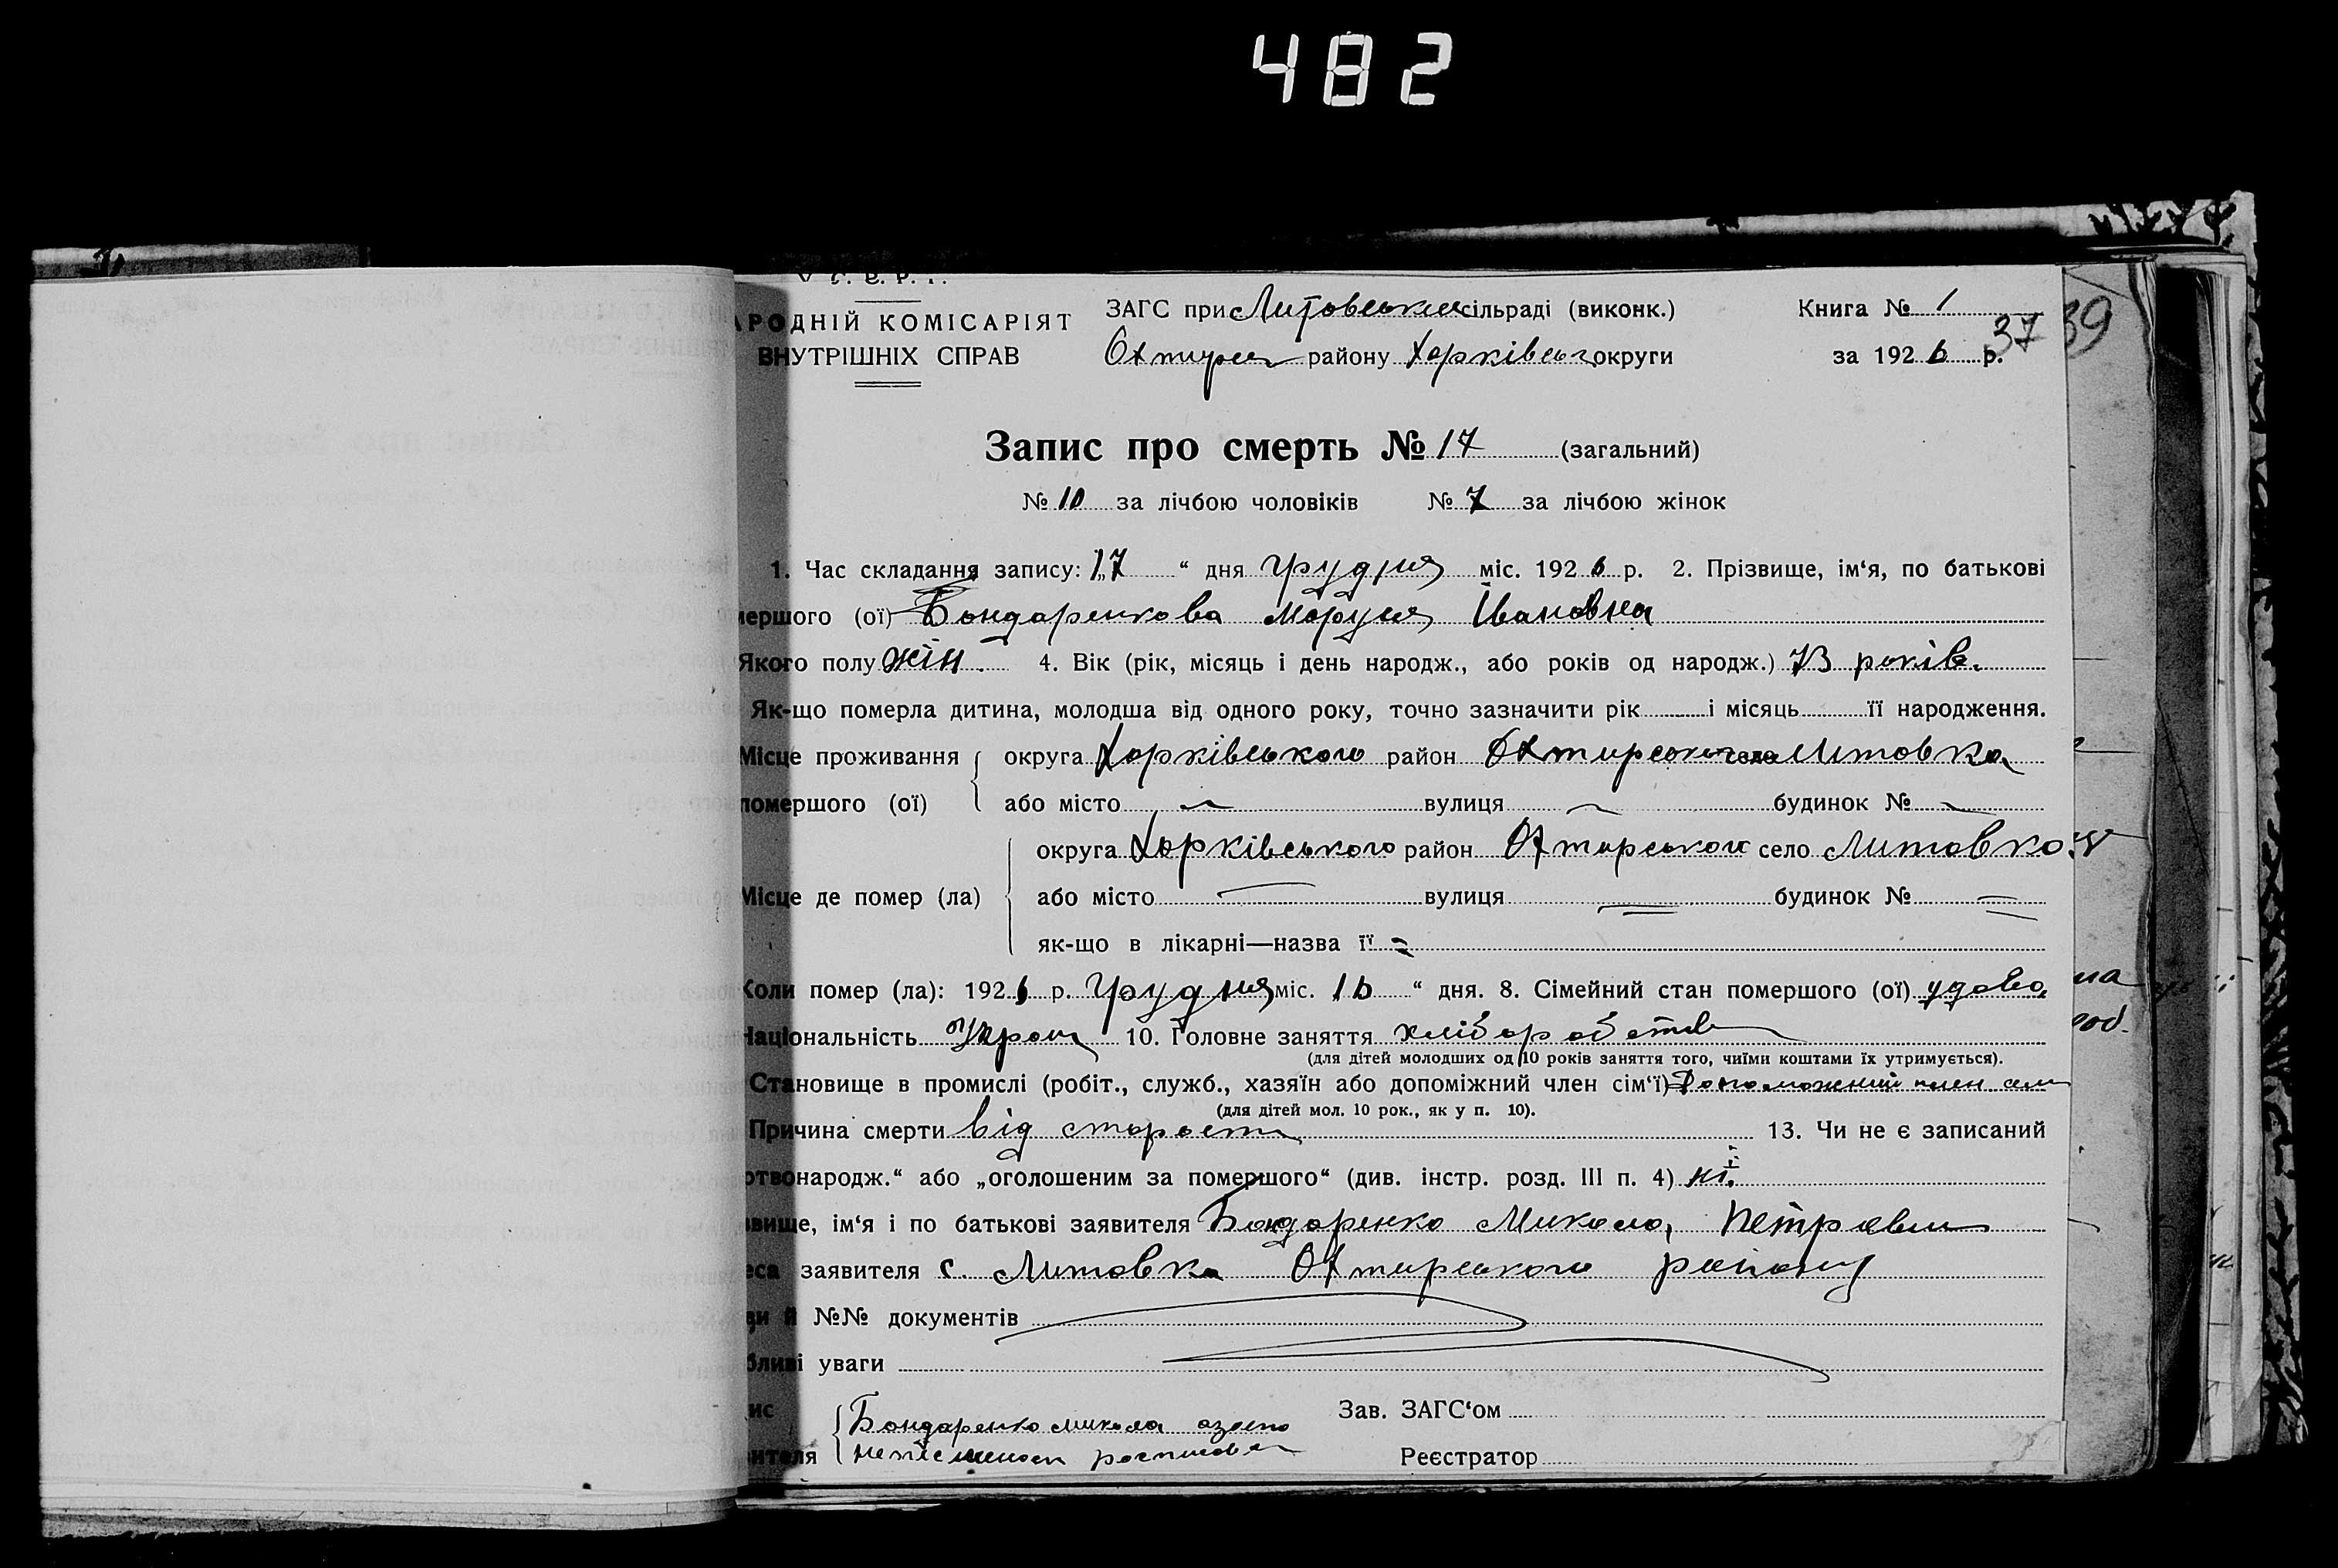 482
У С. Р. Р.
АРОДНІЙ КОМІСАРІЯТ
ВНУТРІШНІХ СПРАВ
ЗАГС при Литовський сільраді (виконк.)
Охтирск району Харківськ округи
Книга № 1
за 1926 р.
37 39
Запис про смерть № 17 (загальний)
№ 10 за лічбою чоловіків № 7 за лічбою жінок
1. Час складання запису: „17 “ дня грудня міс. 1926 р. 2. Прізвище, ім‘я, по батькові
мершого (ої) Бондаренкова Маруся Івановна
Якого полу жін. 4. Вік (рік, місяць і день народж., або років од народж.) 73 років.
Як-що померла дитина, молодша від одного року, точно зазначити рік і місяць її народження.
Місце проживання округа Харківського район Охтирського село Литовка
помершого (ої) або місто вулиця будинок №
округа Харківського район Охтирського село Литовка
Місце де помер (ла) або місто вулиця будинок №
як-що в лікарні—назва її
Коли помер (ла): 1926 р. Грудня міс. 16 “ дня. 8. Сімейний стан помершого (ої) удова
Національність Украї 10. Головне заняття хліборобств
(для дітей молодших од 10 років заняття того, чиїми коштами їх утримується).
Становище в промислі (робіт., служб., хазяїн або допоміжний член сім‘ї) Допоможний член сім
(для дітей мол. 10 рок., як у п. 10).
Причина смерти від старости 13. Чи не є записаний
отвонародж.“ або „оголошеним за помершого“ (див. інстр. розд. III п. 4) ні.
звище, ім‘я і по батькові заявителя Бондаренко Микола, Петрович
еса заявителя с. Литовка Охтирського району
ви й №№ документів
бливі уваги
ис Бондаренко Микола
ителя
Зав. ЗАГС‘ом
Реєстратор